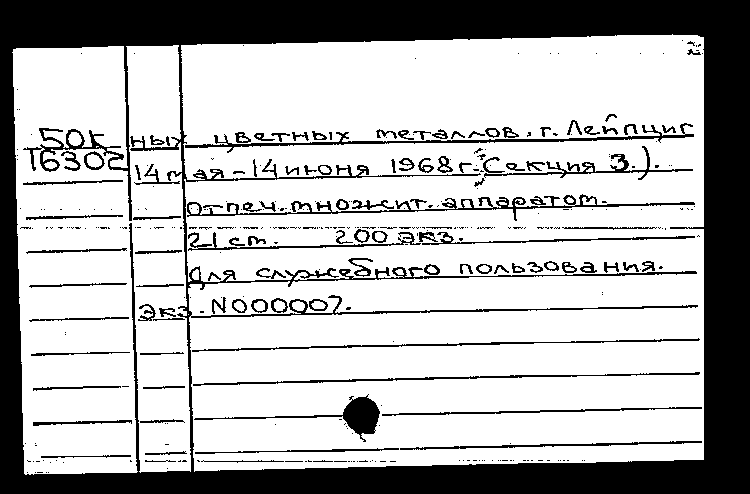 50К ных цветных металлов. г. Лейпциг
16302 14 мая - 14 июня 1968 г. Секция 3.).
Отпеч. множит. аппаратом.
21 cm. 200 экз.
Для служебного пользования.
экз. N000007.